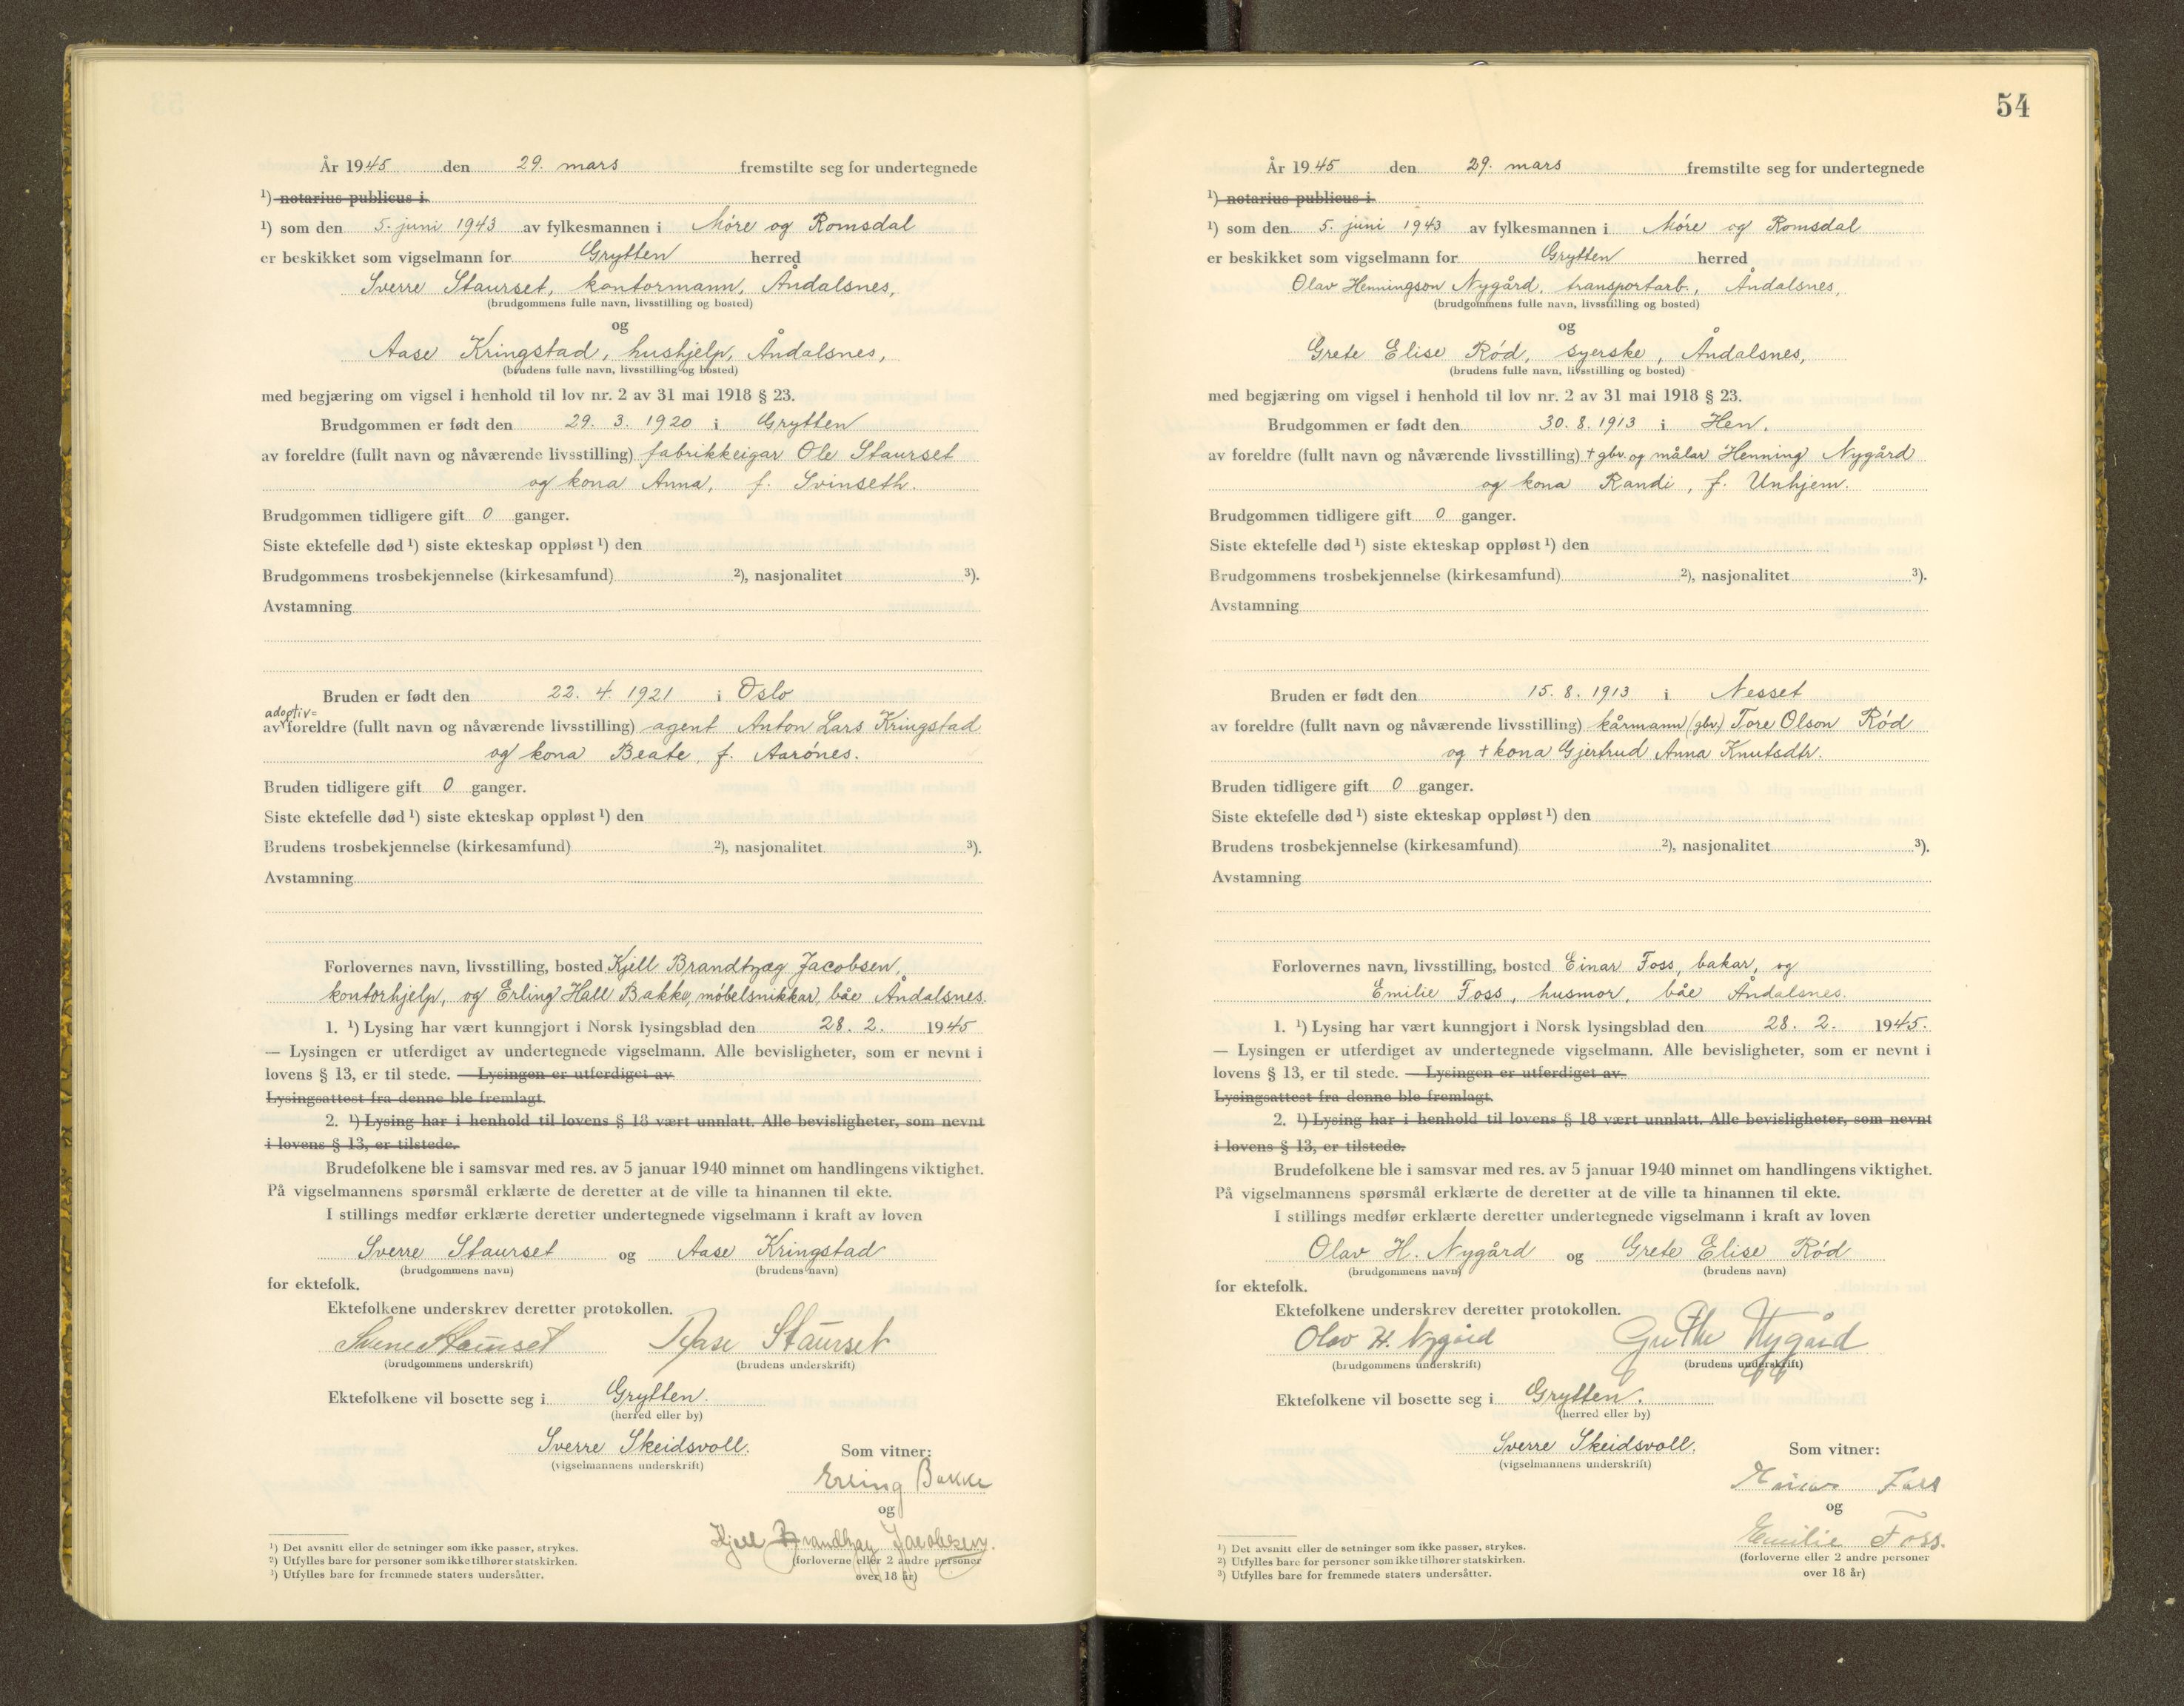 År 1945 den 29. mars fremstilte seg for undertegnede
¹) notarius publicus i
¹) som den 5. juni 1943 av fylkesmannen i Móre og Romsdal
er beskikket som vigselmann for Grytten herred
Sverre Staurset, kontormann, Åndalsnes,
(brudgommens fulle navn, livsstilling og bosted)
og
Aase Kringstad, hushjelp, Åndalsnes,
(brudens fulle navn, livsstilling og bosted)
med begjæring om vigsel i henhold til lov nr. 2 av 31 mai 1918 § 23.
Brudgommen er født den 29. 3. 1920 i Grytten
av foreldre (fullt navn og nåværende livsstilling) fabrikkeigar Ole Staurset
og kona Anna, f. Svinseth.
Brudgommen tidligere gift 0 ganger.
Siste ektefelle død ¹) siste ekteskap oppløst ¹) den
Brudgommens trosbekjennelse (kirkesamfund) ²), nasjonalitet ³).
Avstamning
Bruden er født den 22. 4. 1921 i Oslo
adoptiv=
av foreldre (fullt navn og nåværende livsstilling) agent Anton Lars Kringstad
og kona Beate, f. Aarónes.
Bruden tidligere gift 0 ganger.
Siste ektefelle død ¹) siste ekteskap oppløst ¹) den
Brudens trosbekjennelse (kirkesamfund) ²), nasjonalitet ³).
Avstamning
Forlovernes navn, livsstilling, bosted Kjell Brandtzæg Jacobsen,
kontorhjelp, og Erling Hall Bakke, móbelsnikkar, båe Åndalsnes.
1. ¹) Lysing har vært kunngjort i Norsk lysingsblad den 28. 2. 1945
— Lysingen er utferdiget av undertegnede vigselmann. Alle bevisligheter, som er nevnt i
lovens § 13, er til stede. — Lysingen er utferdiget av
Lysingsattest fra denne ble fremlagt.
2. ¹) Lysing har i henhold til lovens § 18 vært unnlatt. Alle bevisligheter, som nevnt
i lovens § 13, er tilstede.
Brudefolkene ble i samsvar med res. av 5 januar 1940 minnet om handlingens viktighet.
På vigselmannens spørsmål erklærte de deretter at de ville ta hinannen til ekte.
I stillings medfør erklærte deretter undertegnede vigselmann i kraft av loven
Sverre Staurset og Aase Kringstad
(brudgommens navn) (brudens navn)
for ektefolk.
Ektefolkene underskrev deretter protokollen.
Sverre Staurset Aase Staurset
(brudgommens underskrift) (brudens underskrift)
Ektefolkene vil bosette seg i Grytten.
(herred eller by)
Sverre Skeidsvoll. Som vitner:
(vigselmannens underskrift)
Erling Bakke
og
Kjell Brandtzæg Jacobsen.
(forloverne eller 2 andre personer
over 18 år)
¹) Det avsnitt eller de setninger som ikke passer, strykes.
²) Utfylles bare for personer som ikke tilhører statskirken.
³) Utfylles bare for fremmede staters undersåtter.
54
År 1945 den 29. mars fremstilte seg for undertegnede
¹) notarius publicus i
¹) som den 5. juni 1943 av fylkesmannen i Móre og Romsdal
er beskikket som vigselmann for Grytten herred
Olav Henningson Nygård, transportarb., Åndalsnes,
(brudgommens fulle navn, livsstilling og bosted)
og
Grete Elise Ród, syerske, Åndalsnes,
(brudens fulle navn, livsstilling og bosted)
med begjæring om vigsel i henhold til lov nr. 2 av 31 mai 1918 § 23.
Brudgommen er født den 30. 8. 1913 i Hen.
av foreldre (fullt navn og nåværende livsstilling) + gbr. og målar Henning Nygård
og kona Randi, f. Unhjem.
Brudgommen tidligere gift 0 ganger.
Siste ektefelle død ¹) siste ekteskap oppløst ¹) den
Brudgommens trosbekjennelse (kirkesamfund) ²), nasjonalitet ³).
Avstamning
Bruden er født den 15. 8. 1913 i Nesset
av foreldre (fullt navn og nåværende livsstilling) kårmann (gbr.) Tore Olson Ród
og + kona Gjertrud Anna Knutsdtr.
Bruden tidligere gift 0 ganger.
Siste ektefelle død ¹) siste ekteskap oppløst ¹) den
Brudens trosbekjennelse (kirkesamfund) ²), nasjonalitet ³).
Avstamning
Forlovernes navn, livsstilling, bosted Einar Foss, bakar, og
Emilie Foss, husmor, båe Åndalsnes.
1. ¹) Lysing har vært kunngjort i Norsk lysingsblad den 28. 2. 1945.
— Lysingen er utferdiget av undertegnede vigselmann. Alle bevisligheter, som er nevnt i
lovens § 13, er til stede. — Lysingen er utferdiget av
Lysingsattest fra denne ble fremlagt.
2. ¹) Lysing har i henhold til lovens § 18 vært unnlatt. Alle bevisligheter, som nevnt
i lovens § 13, er tilstede.
Brudefolkene ble i samsvar med res. av 5 januar 1940 minnet om handlingens viktighet.
På vigselmannens spørsmål erklærte de deretter at de ville ta hinannen til ekte.
I stillings medfør erklærte deretter undertegnede vigselmann i kraft av loven
Olav H. Nygård og Grete Elise Ród
(brudgommens navn) (brudens navn)
for ektefolk.
Ektefolkene underskrev deretter protokollen.
Olav H. Nygård Grethe Nygård
(brudgommens underskrift) (brudens underskrift)
Ektefolkene vil bosette seg i Grytten.
(herred eller by)
Sverre Skeidsvoll. Som vitner:
(vigselmannens underskrift)
Einar Foss
og
Emilie Foss.
(forloverne eller 2 andre personer
over 18 år)
¹) Det avsnitt eller de setninger som ikke passer, strykes.
²) Utfylles bare for personer som ikke tilhører statskirken.
³) Utfylles bare for fremmede staters undersåtter.